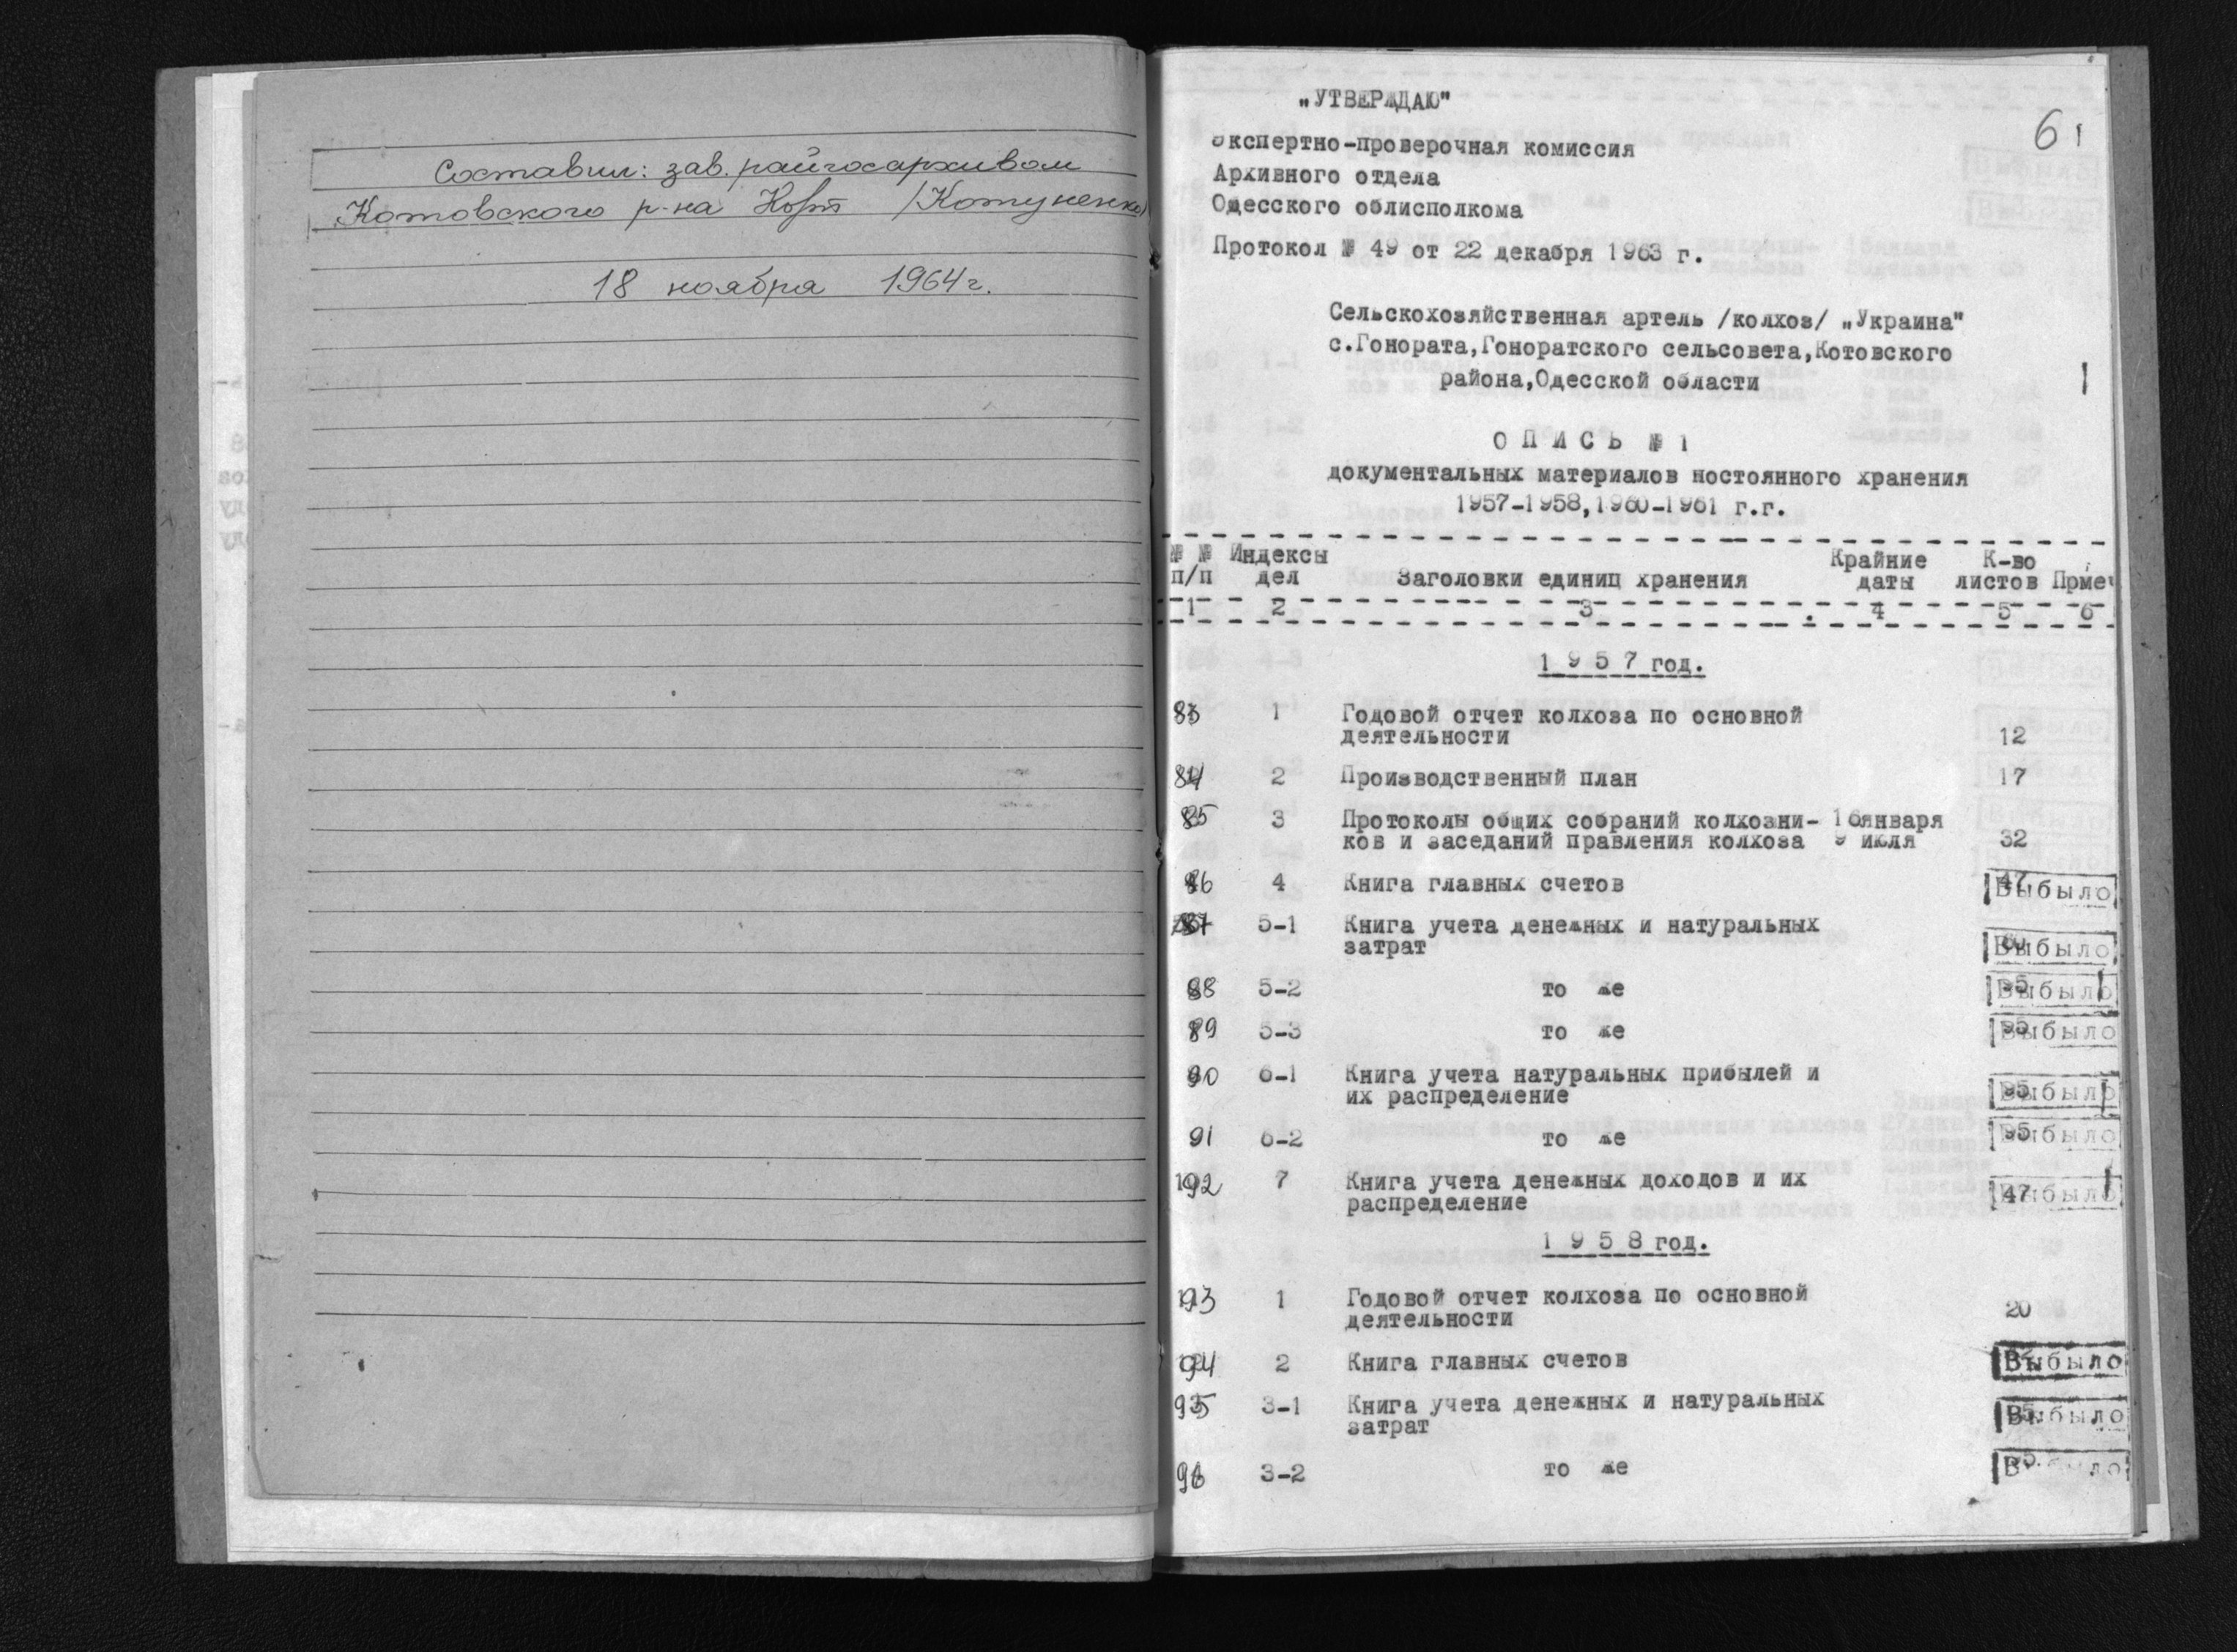 Составил: зав. райгосархивом
Котовского р-на /Котуненко/
18 ноября 1964 г.
6
„УТВЕРЖДАЮ"
Экспертно-проверочная комиссия
Архивного отдела
Одесского облисполкома
Протокол № 49 от 22 декабря 1963 г.
Сельскохозяйственная артель /колхоз/ „Украина"
с.Гонората,Гоноратского сельсовета,Котовского
района,Одесской области
О П И С Ь № 1
документальных материалов постоянного хранения
1957-1958,1960-1961 г.г.
№ № Индексы Крайние К-во
п/п дел Заголовки единиц хранения даты листов Прмеч
1 2 3 4 5 6
1 9 5 7 год.
83 1 Годовой отчет колхоза по основной
деятельности 12
84 2 Производственный план 17
85 3 Протоколы общих собраний колхозни- 16января
ков и заседаний правления колхоза 9 июля 32
86 4 Книга главных счетов 47 Выбыло
87 5-1 Книга учета денежных и натуральных
затрат Выбыло
88 5-2 то же Выбыло
89 5-3 то же Выбыло
90 6-1 Книга учета натуральных прибылей и
их распределение 95 Выбыло
91 6-2 то же 95 Выбыло
92 7 Книга учета денежных доходов и их
распределение 47 Выбыло
1 9 5 8 год.
93 1 Годовой отчет колхоза по основной
деятельности 20
94 2 Книга главных счетов Выбыло
95 3-1 Книга учета денежных и натуральных
затрат Выбыло
96 3-2 то же Выбыло